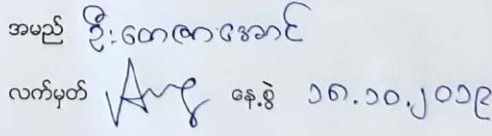 အမည် ဦးတေဇာအောင်
လက်မှတ် နေ့စွဲ ၁၈.၁၀.၂၀၁၉